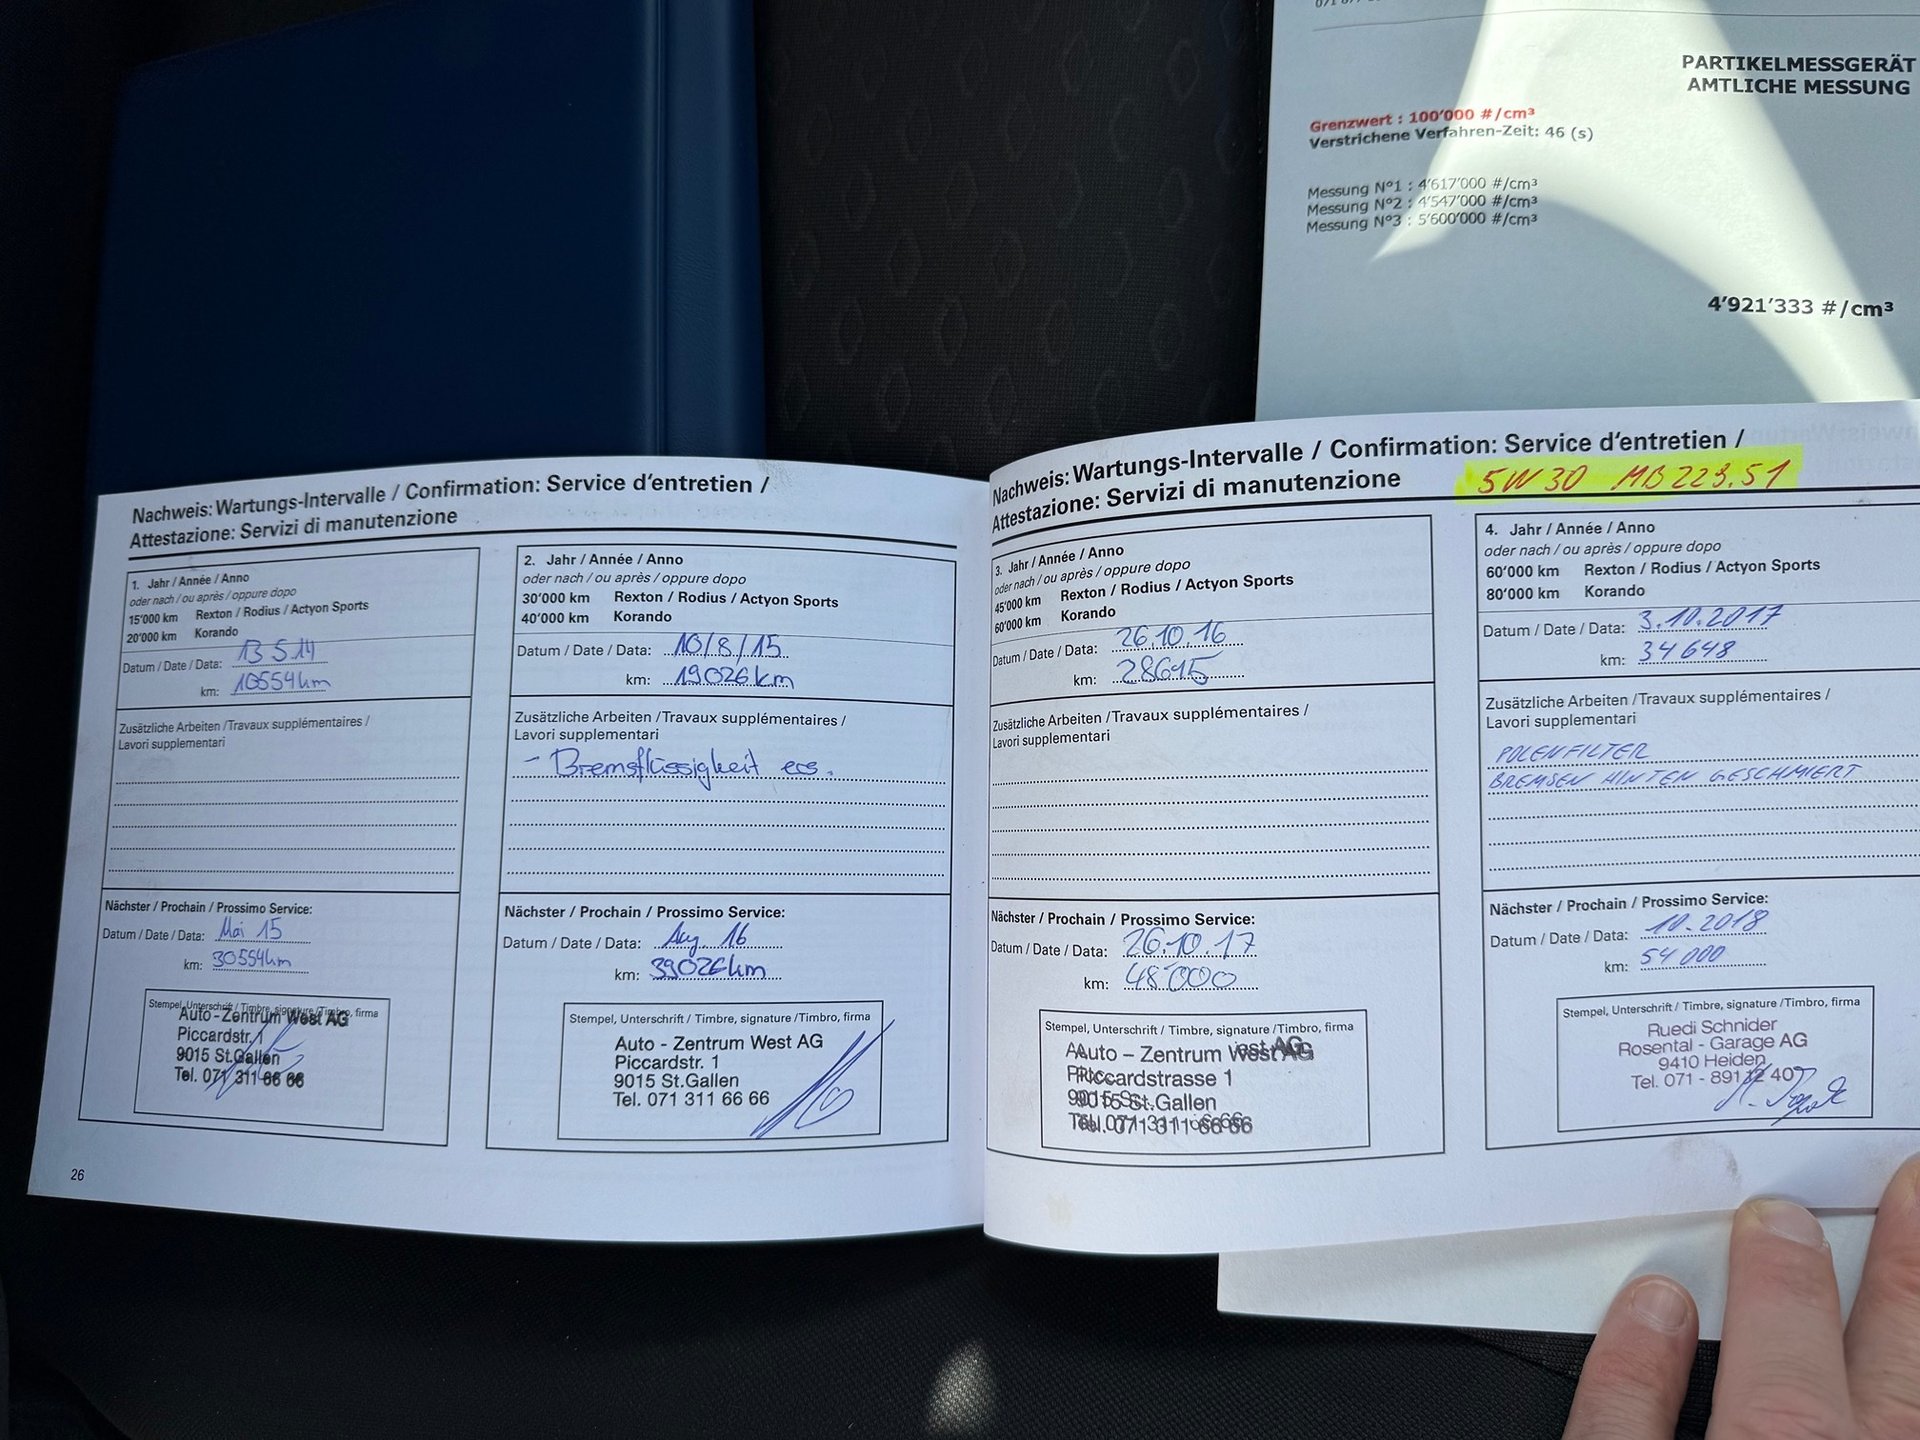 PARTIKELMESSGERÄT
AMTLICHE MESSUNG
Grenzwert : 100'000 #/cm³
Verstrichene Verfahren-Zeit: 46 (s)
Messung N°1 : 4'617'000 #/cm³
Messung N°2 : 4'547'000 #/cm³
Messung N°3 : 5'600'000 #/cm³
4'921'333 #/cm³
Nachweis: Wartungs-Intervalle / Confirmation: Service d'entretien /
Attestazione: Servizi di manutenzione
1. Jahr / Année / Anno
oder nach / ou après / oppure dopo
15'000 km Rexton / Rodius / Actyon Sports
20'000 km Korando
Datum / Date / Data: 13 5.14
km: 10554km
Zusätzliche Arbeiten / Travaux supplémentaires /
Lavori supplementari
Nächster / Prochain / Prossimo Service:
Datum / Date / Data: Mai 15
km: 30554km
Stempel, Unterschrift / Timbre, signature / Timbro, firma
Auto - Zentrum West AG
Piccardstr. 1
9015 St.Gallen
Tel. 071 311 66 66
26
2. Jahr / Année / Anno
oder nach / ou après / oppure dopo
30'000 km Rexton / Rodius / Actyon Sports
40'000 km Korando
Datum / Date / Data: 10/8/15
km: 19026km
Zusätzliche Arbeiten / Travaux supplémentaires /
Lavori supplementari
- Bremsflüssigkeit ers.
Nächster / Prochain / Prossimo Service:
Datum / Date / Data: Aug. 16
km: 39026km
Stempel, Unterschrift / Timbre, signature / Timbro, firma
Auto - Zentrum West AG
Piccardstr. 1
9015 St.Gallen
Tel. 071 311 66 66
Nachweis: Wartungs-Intervalle / Confirmation: Service d'entretien /
Attestazione: Servizi di manutenzione
5W30 MB 229.51
3. Jahr / Année / Anno
oder nach / ou après / oppure dopo
45'000 km Rexton / Rodius / Actyon Sports
60'000 km Korando
Datum / Date / Data: 26.10.16
km: 28615
Zusätzliche Arbeiten / Travaux supplémentaires /
Lavori supplementari
Nächster / Prochain / Prossimo Service:
Datum / Date / Data: 26.10.17
km: 48'000
Stempel, Unterschrift / Timbre, signature / Timbro, firma
Auto – Zentrum West AG
Piccardstrasse 1
9015 St.Gallen
Tel. 071 311 66 66
4. Jahr / Année / Anno
oder nach / ou après / oppure dopo
60'000 km Rexton / Rodius / Actyon Sports
80'000 km Korando
Datum / Date / Data: 3.10.2017
km: 34648
Zusätzliche Arbeiten / Travaux supplémentaires /
Lavori supplementari
POLENFILTER
BREMSEN HINTEN GESCHMIERT
Nächster / Prochain / Prossimo Service:
Datum / Date / Data: 10.2018
km: 54000
Stempel, Unterschrift / Timbre, signature / Timbro, firma
Ruedi Schnider
Rosental - Garage AG
9410 Heiden
Tel. 071 - 891 12 40